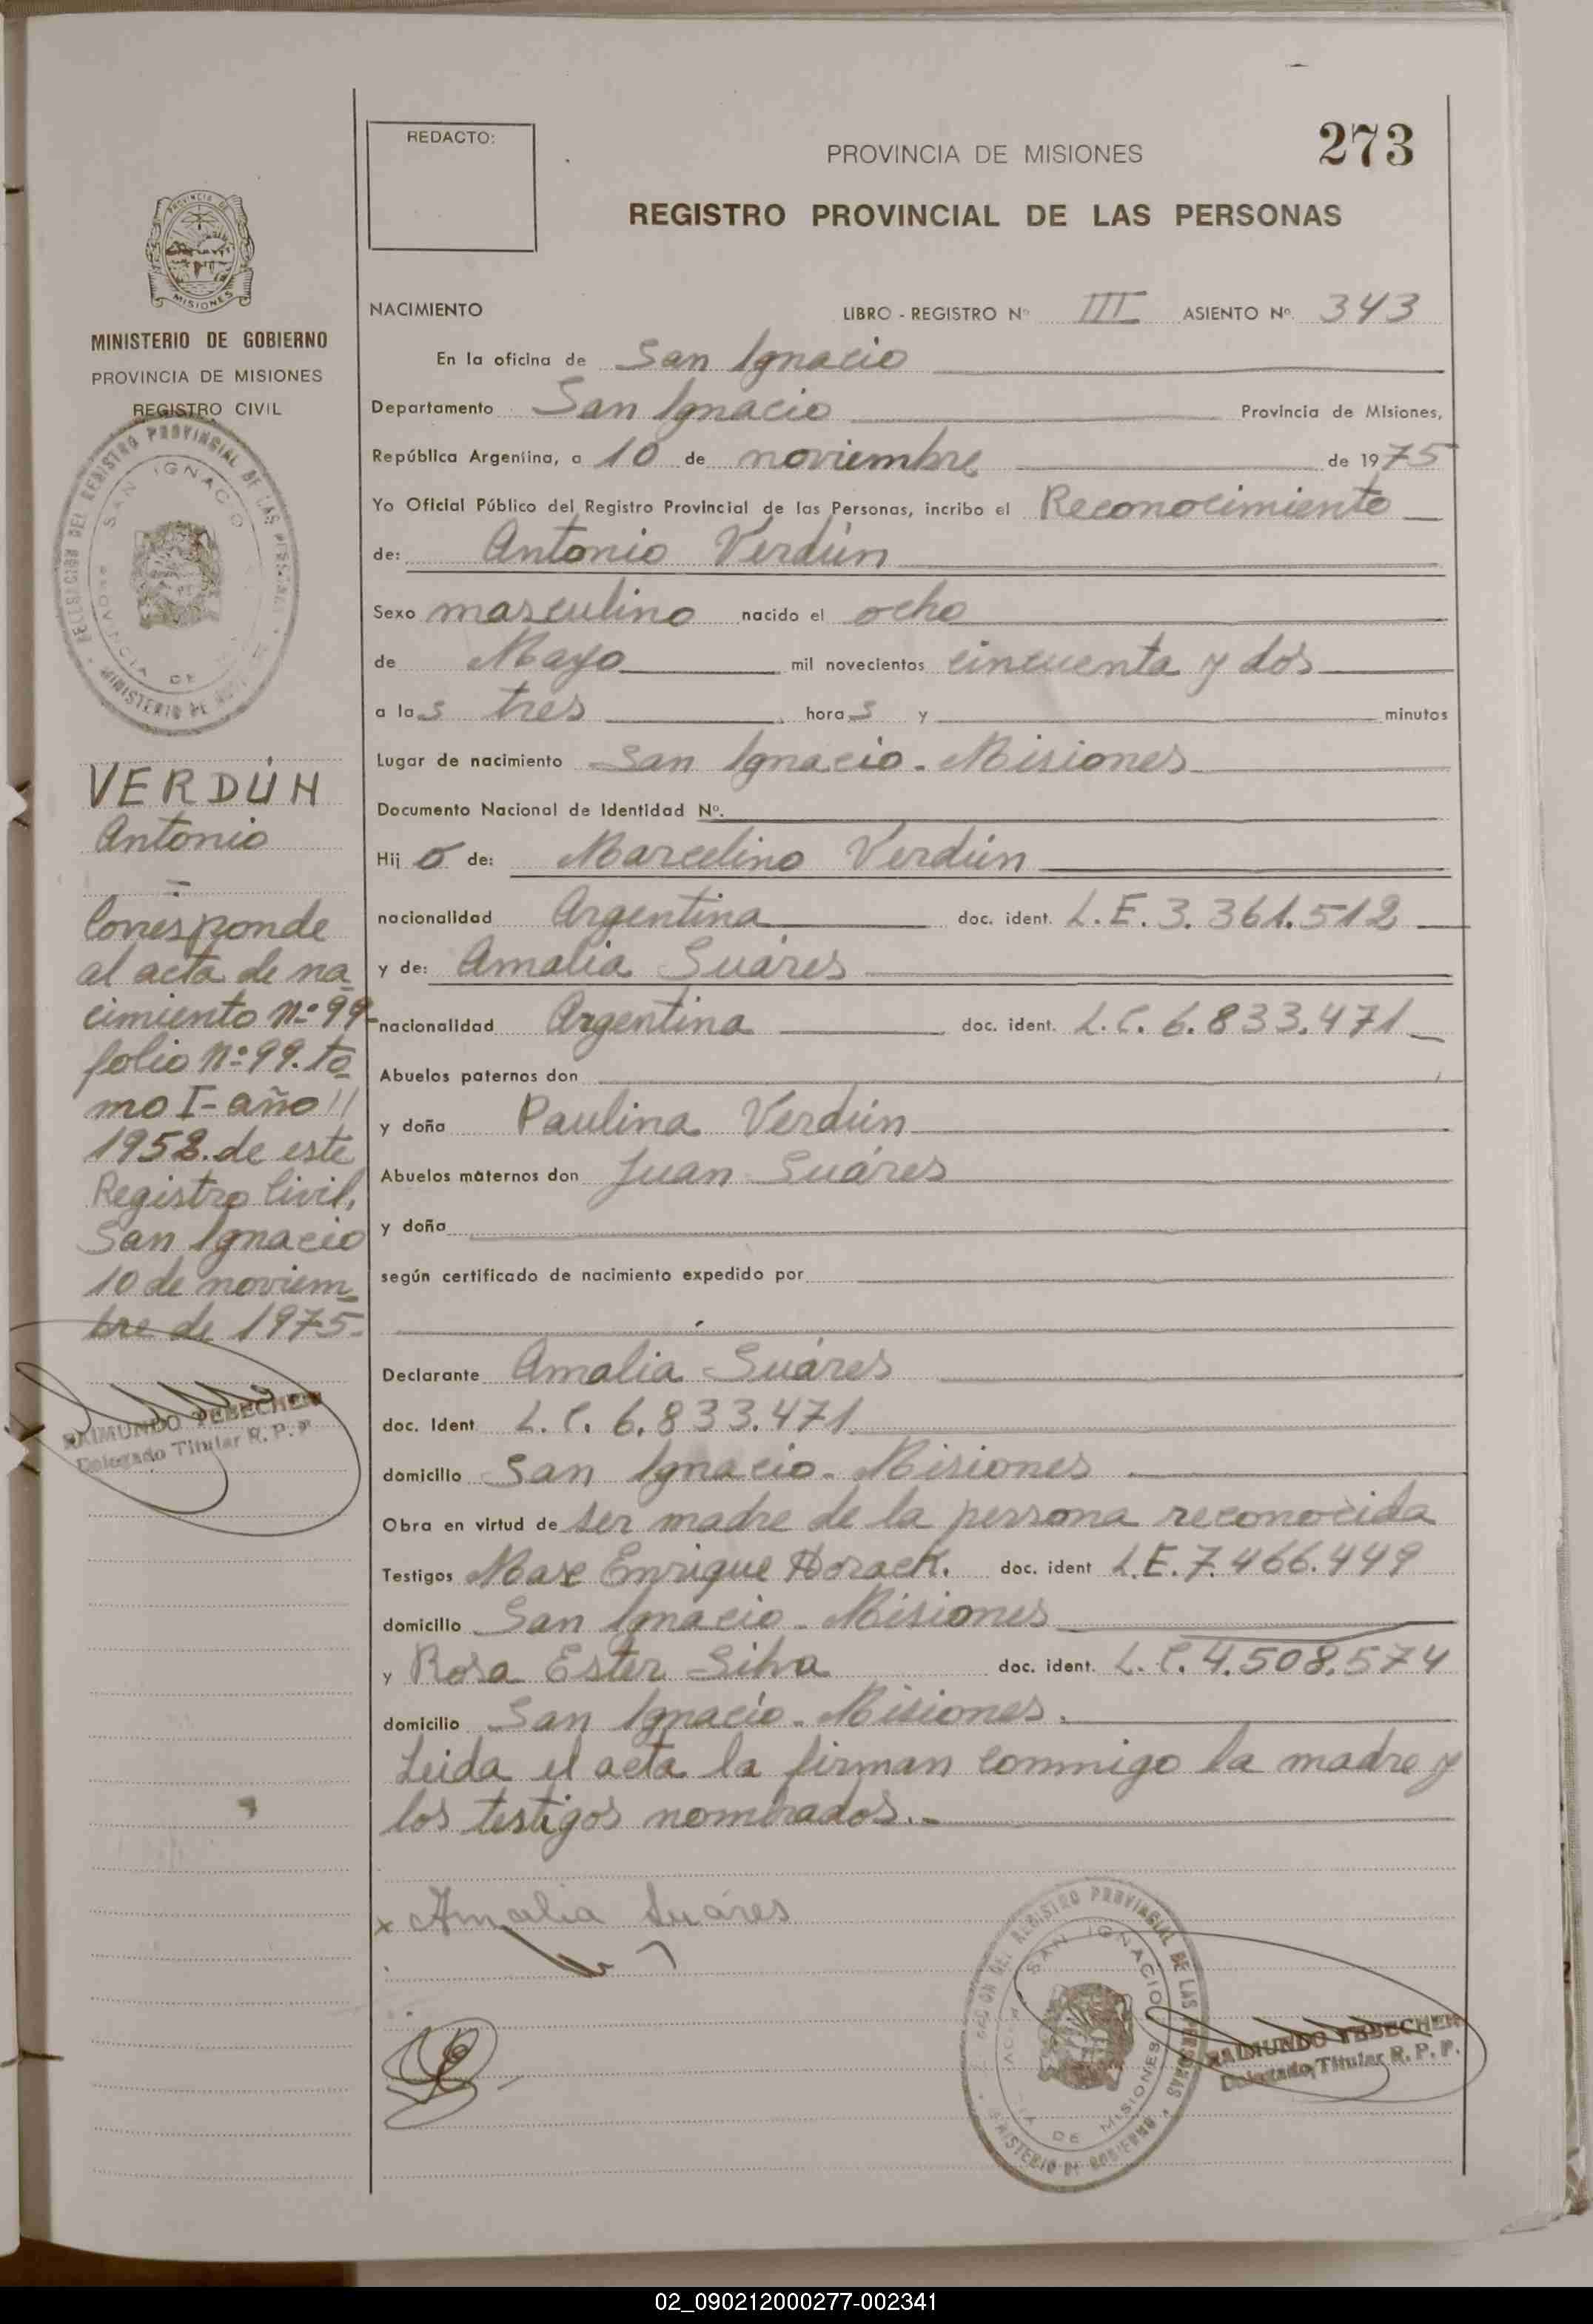 REDACTO:
PROVINCIA DE MISIONES
273
REGISTRO PROVINCIAL DE LAS PERSONAS
PROVINCIA DE
MISIONES
MINISTERIO DE GOBIERNO
PROVINCIA DE MISIONES
REGISTRO CIVIL
NACIMIENTO LIBRO - REGISTRO Nº III ASIENTO Nº 343
En la oficina de San Ignacio
Departamento San Ignacio Provincia de Misiones,
República Argentina, a 10 de noviembre de 1975
Yo Oficial Público del Registro Provincial de las Personas, incribo el Reconocimiento
de: Antonio Verdún
Sexo masculino nacido el ocho
de Mayo mil novecientos cincuenta y dos
a las tres horas y minutos
Lugar de nacimiento San Ignacio - Misiones
Documento Nacional de Identidad Nº.
Hijo de: Marcelino Verdún
nacionalidad Argentina doc. ident. L.E. 3.361.512
y de: Amalia Suáres
nacionalidad Argentina doc. ident. L.C. 6.833.471
Abuelos paternos don
y doña Paulina Verdún
Abuelos maternos don Juan Suáres
y doña
según certificado de nacimiento expedido por
Declarante Amalia Suáres
doc. Ident. L.C. 6.833.471
domicilio San Ignacio - Misiones
Obra en virtud de ser madre de la persona reconocida
Testigos Enrique doc. ident L.E. 7.466.449
domicilio San Ignacio - Misiones
y Rosa Ester Silva doc. ident. L.C. 4.508.574
domicilio San Ignacio - Misiones.
Leida el acta la firman conmigo la madre y
los testigos nombrados.-
x Amalia Suáres
VERDÚN
Antonio
Corresponde
al acta de na
cimiento nº 99-
folio nº 99. to
mo I - año
1952. de este
Registro Civil,
San Ignacio
10 de noviem
bre de 1975.
RAIMUNDO TEBECHERI
Delegado Titular R. P. P.
DELEGACION DEL REGISTRO PROVINCIAL DE LAS PERSONAS
SAN IGNACIO
DE MISIONES
MINISTERIO DE GOBIERNO
RAIMUNDO TEBECHERI
Delegado Titular R. P. P.
02_090212000277-002341